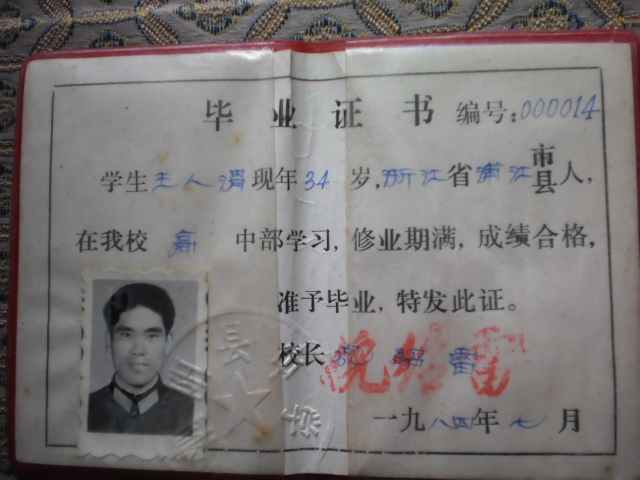 毕业证书 编号:000014
学生王人渭现年34岁,浙江省浦江市县人,
在我校高中部学习,修业期满,成绩合格,
准予毕业,特发此证。
校长
一九八四年七月